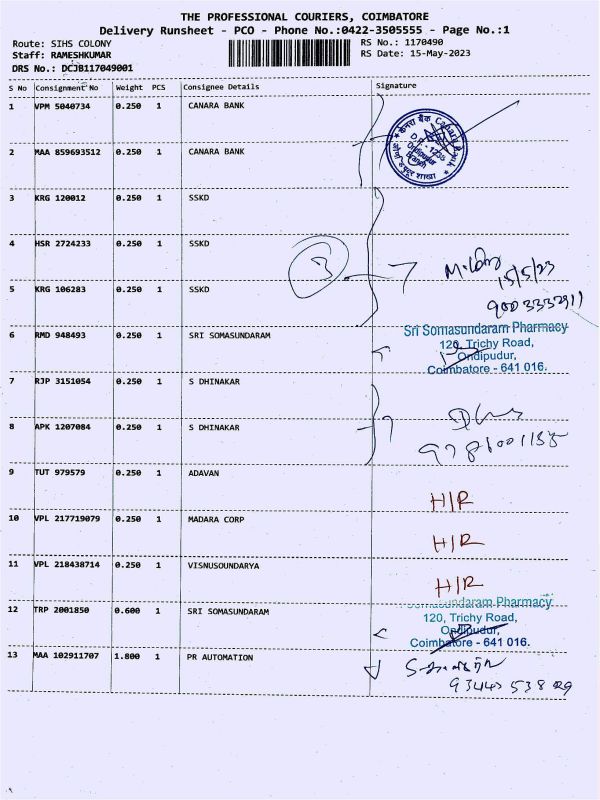 THE PROFESSIONAL COURIERS, COIMBATORE
Delivery Runsheet - PCO - Phone No.:0422-3505555 - Page No.:1
Route: SIHS COLONY
RS No.: 1170490
Staff: RAMESHKUMAR
RS Date: 15-May-2023
DRS No.: DCJB117049001
S No Consignment No Weight PCS Consignee Details Signature
1 VPM 5040734 0.250 1 CANARA BANK
2 MAA 859693512 0.250 1 CANARA BANK
केनरा बैंक Canara Bank
Ondipudur
Branch
3 KRG 120012 0.250 1 SSKD
4 HSR 2724233 0.250 1 SSKD
3
15/5/23
5 KRG 106283 0.250 1 SSKD
9003332911
Sri Somasundaram Pharmacy
6 RMD 948493 0.250 1 SRI SOMASUNDARAM
120, Trichy Road,
Ondipudur,
Coimbatore - 641 016.
7 RJP 3151054 0.250 1 S DHINAKAR
8 APK 1207084 0.250 1 S DHINAKAR
9 TUT 979579 0.250 1 ADAVAN
H/R
10 VPL 217719079 0.250 1 MADARA CORP
H/R
11 VPL 218438714 0.250 1 VISNUSOUNDARYA
H/R
Pharmacy
12 TRP 2001850 0.600 1 SRI SOMASUNDARAM
120, Trichy Road,
Ondipudur,
Coimbatore - 641 016.
13 MAA 102911707 1.800 1 PR AUTOMATION